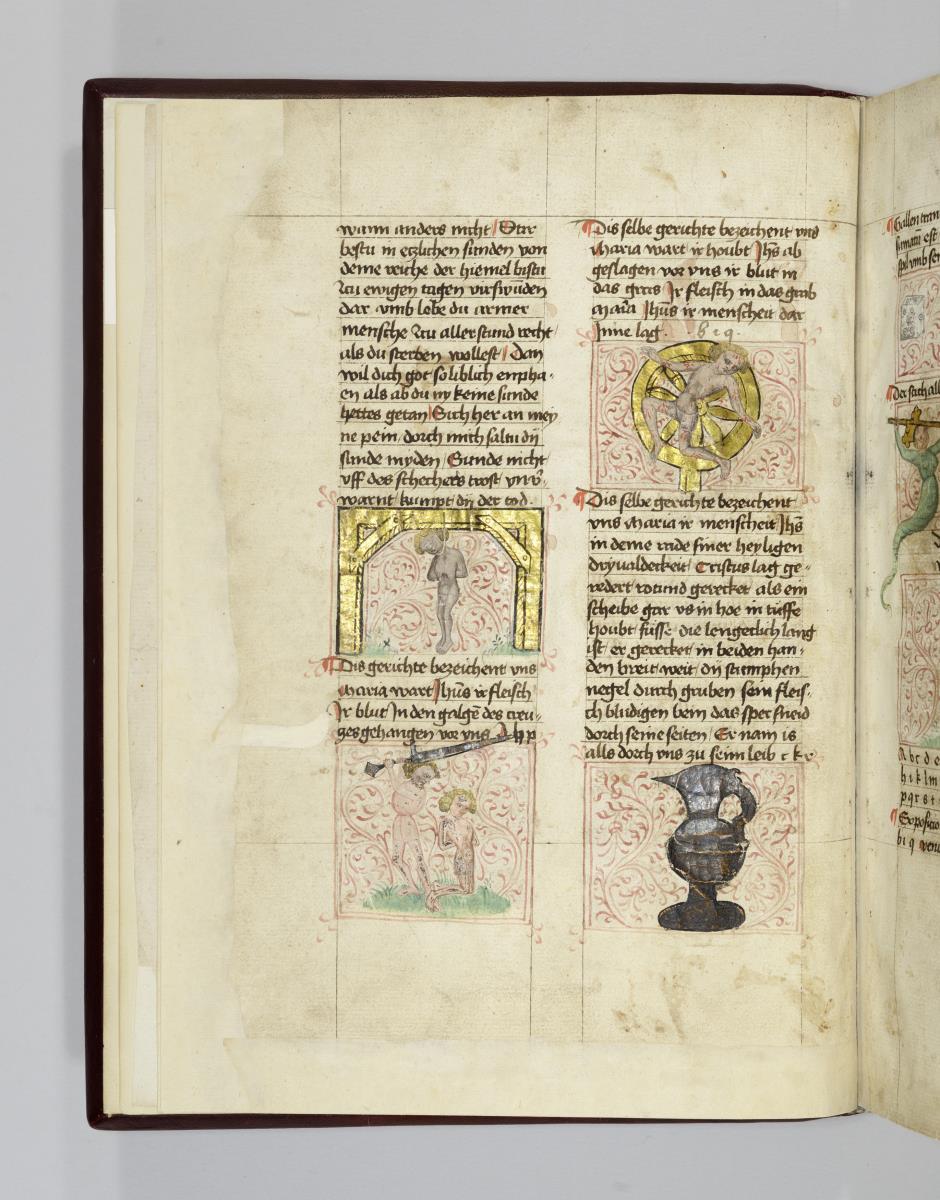 wann anders nicht / Star
bestu in etzlichen sunden von
deme reiche der hiemel bistu
zcu ewigen tagen vorswunden
dar vmb lebe du armer
mensche zcu aller stund recht
als du sterben wollest / Dan
wil dich got so liblich enpha-
en als ab du ny keine sunde
hettes getan / Sich her an mey
ne pein dorch mich saltu dy
sunde myden / Sunde nicht
vff des schechers trost vnv̄
warnt kumpt dy der tod .
Dis gerichte bezeichent vns
Maria wart Jhūs ir fleisch
Jr blut Jn den galgē des creu-
zes gehangen vor vns
Dis selbe gerichte bezeichent vns
Maria wart ir houbt Jhs ab
geslagen vor vns ir blut in
das gras Jr fleisch in das grab
Jhūs ir menscheit dar
Jnne lag . b i q .
Dis selbe gerichte bezeichent
vns Maria ir menscheit Jhs
in deme rade siner heyligen
dryualdeckeit / Cristus lag ge-
redert rotund gerecket als ein
scheibe gar vs in hoe in tuffe
houbt fusse die lengetlich lang
ist / er gerecket in beiden han-
den breit weit / dy stumphen
negel durch gruben sein fleis-
ch bludigen dorch seine seiten / Er nam is
alls dorch vns zu seim leib c k r
Gallen
Der
A b c d e
h i k l m
p q r s t
b i q